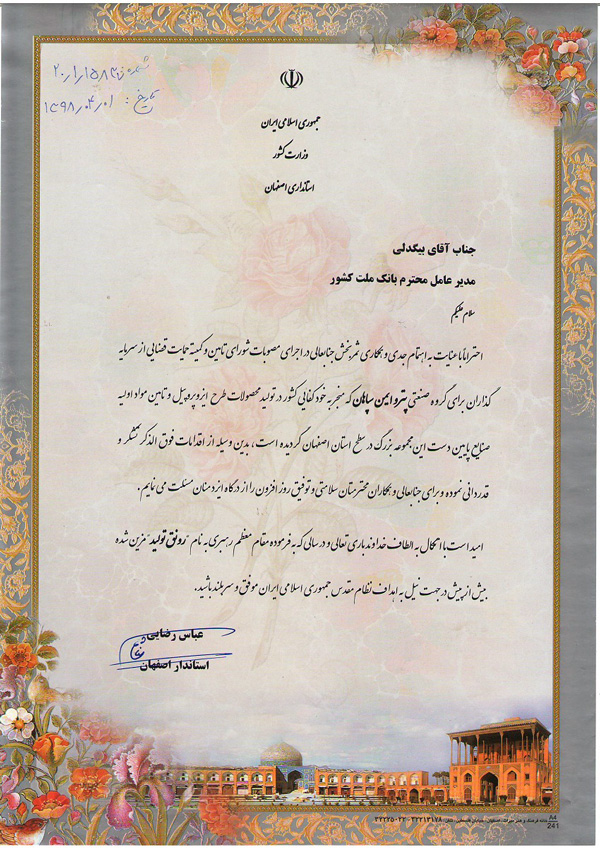 شماره: ۲۰/۱/۱۵۸۴۷
تاریخ: ۱۳۹۸/۰۴/۰۱
جمهوری اسلامی ایران
وزارت کشور
استانداری اصفهان
جناب آقای بیگدلی
مدیر عامل محترم بانک ملت کشور
سلام علیکم
احتراماً با عنایت به اهتمام جدی و همکاری ثمربخش جنابعالی در اجرای مصوبات شورای تامین و کمیته حمایت قضایی از سرمایه
گذاران برای گروه صنعتی پترو امین سپاهان که منجر به خودکفایی کشور در تولید محصولات طرح ایزوپروپیل و تامین مواد اولیه
صنایع پایین دست این مجموعه بزرگ در سطح استان اصفهان گردیده است، بدین وسیله از اقدامات فوق الذکر تشکر و
قدردانی نموده و برای جنابعالی و همکاران محترمتان سلامتی و توفیق روز افزون را از درگاه ایزد منان مسئلت می نمایم.
امید است با اتکال به الطاف خداوند باری تعالی و در سالی که به فرموده مقام معظم رهبری به نام "رونق تولید" مزین شده
بیش از پیش در جهت نیل به اهداف نظام مقدس جمهوری اسلامی ایران موفق و سربلند باشید.
عباس رضایی
استاندار اصفهان
A4
241